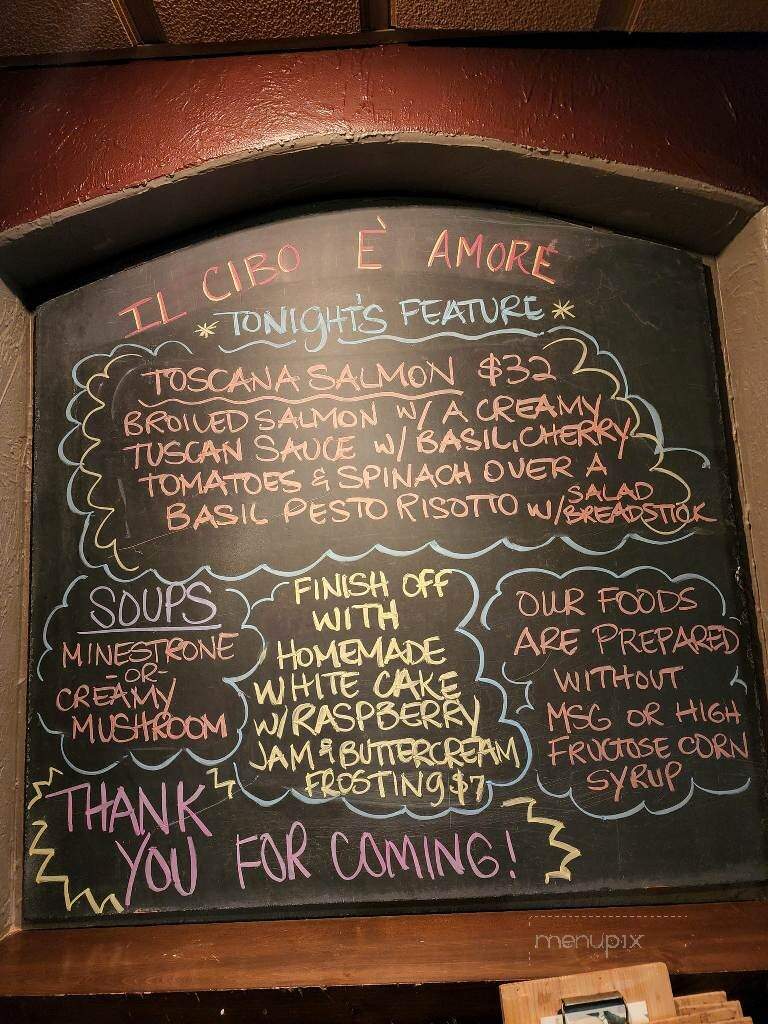 IL CIBO È AMORE
*TONIGHT'S FEATURE*
TOSCANA SALMON $32
BROILED SALMON W/ A CREAMY
TUSCAN SAUCE W/ BASIL, CHERRY
TOMATOES & SPINACH OVER A
BASIL PESTO RISOTTO W/ SALAD
BREADSTICK
SOUPS
MINESTRONE
-OR-
CREAMY
MUSHROOM
FINISH OFF
WITH
HOMEMADE
WHITE CAKE
W/RASPBERRY
JAM & BUTTERCREAM
FROSTING $7
OUR FOODS
ARE PREPARED
WITHOUT
MSG OR HIGH
FRUCTOSE CORN
SYRUP
THANK
YOU FOR COMING!
menupix